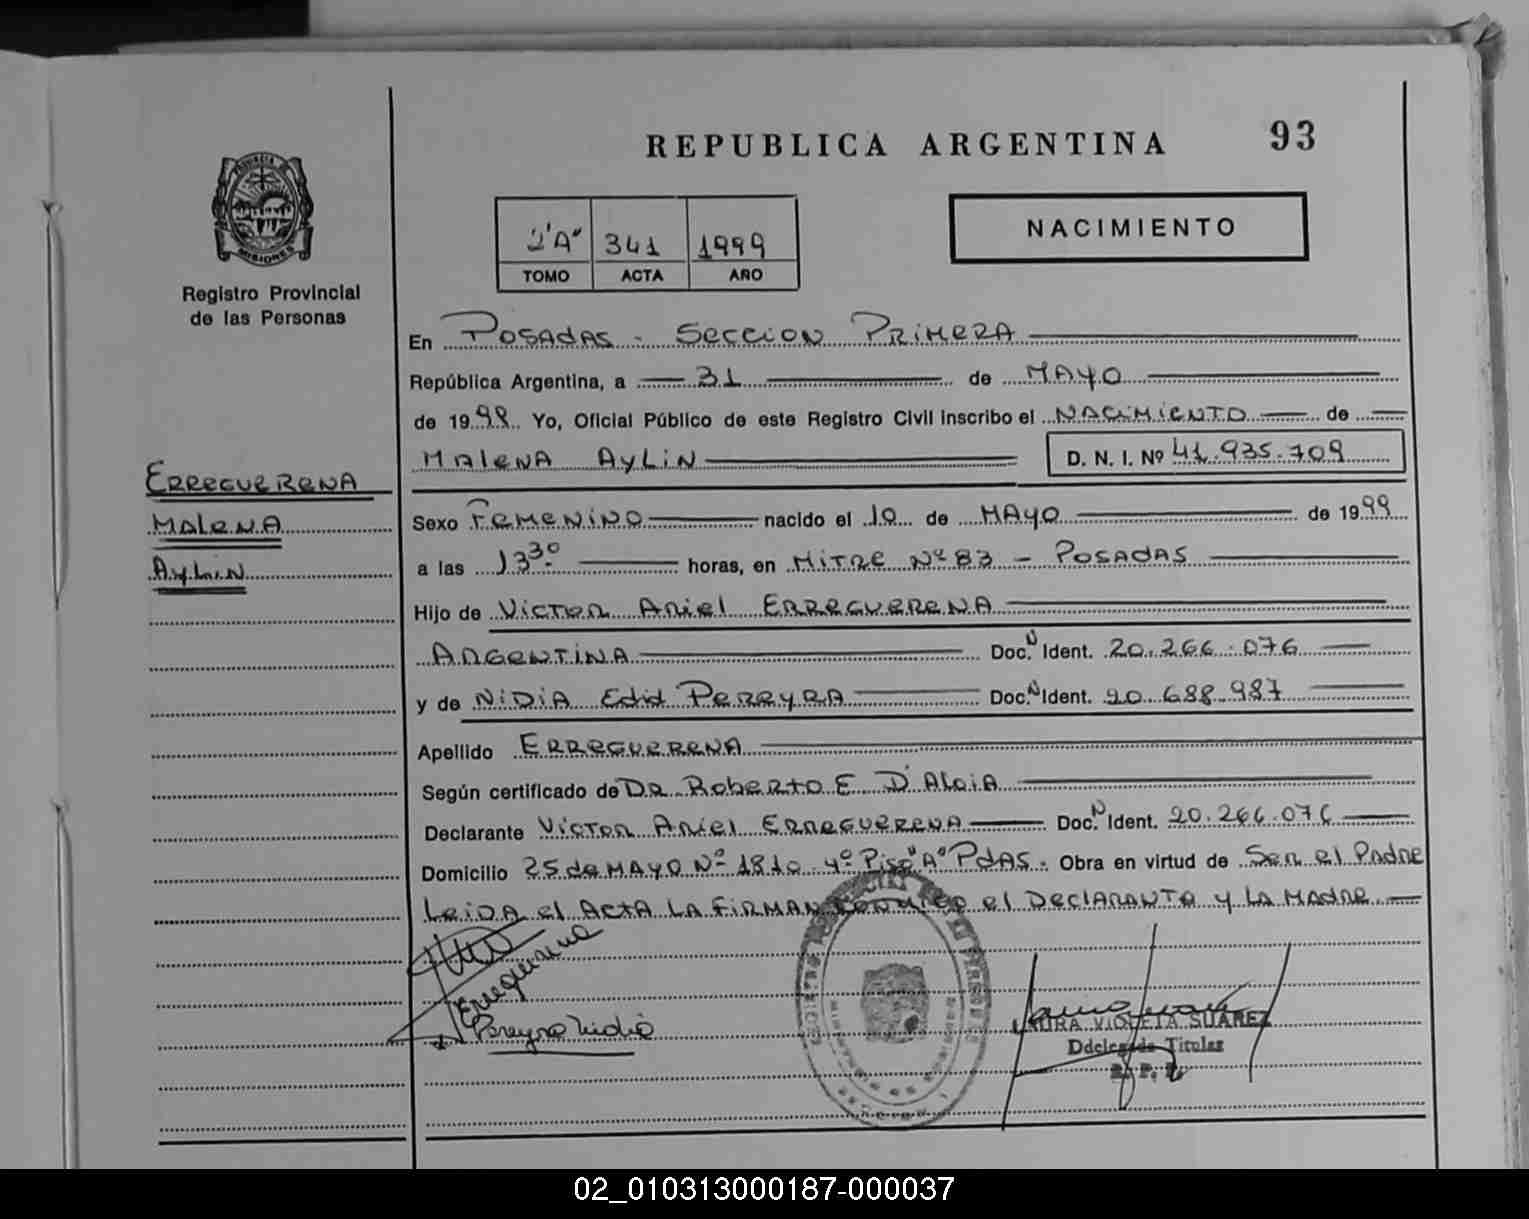 REPUBLICA ARGENTINA
93
PROVINCIA
MISIONES
Registro Provincial
de las Personas
2 "A" 341 1999
TOMO ACTA AÑO
NACIMIENTO
En POSADAS - SECCION PRIMERA
República Argentina, a 31 de MAYO
de 1999 Yo, Oficial Público de este Registro Civil inscribo el NACIMIENTO de
MALENA AYLIN
D. N. I. Nº 41.935.709
ERREGUERENA
MALENA
AYLIN
Sexo FEMENINO nacido el 10 de MAYO de 1999
a las 13 30 horas, en MITRE Nº 83 - POSADAS
Hijo de VICTOR ARIEL ERREGUERENA
ARGENTINA Doc. N Ident. 20.266.076
y de NIDIA EDID PEREYRA Doc. N Ident. 20.688.987
Apellido ERREGUERENA
Según certificado de DR. ROBERTO E D'ALOIA
Declarante VICTOR ARIEL ERREGUERENA Doc. N Ident. 20.266.076
Domicilio 25 de MAYO Nº 1810 4º Piso "A" PdAS. Obra en virtud de Ser el Padre
LEIDA el ACTA LA FIRMAN conmigo el DECLARANTE y LA MADRE
Erreguerena
Pereyra Nidia
LAURA VIOLETA SUAREZ
Ddelegada Titular
R. P. P.
02_010313000187-000037